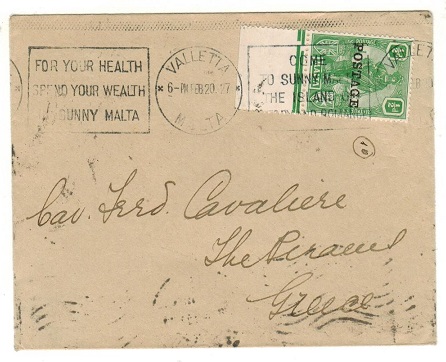 FOR YOUR HEALTH
SPEND YOUR WEALTH
SUNNY MALTA
VALLETTA
6-PM FEB 20. 27
MALTA
COME
TO SUNNY M
THE ISLAND OF
POSTAGE
VALLETTA
Cav. Ferd. Cavaliere
The Piraeus
Greece